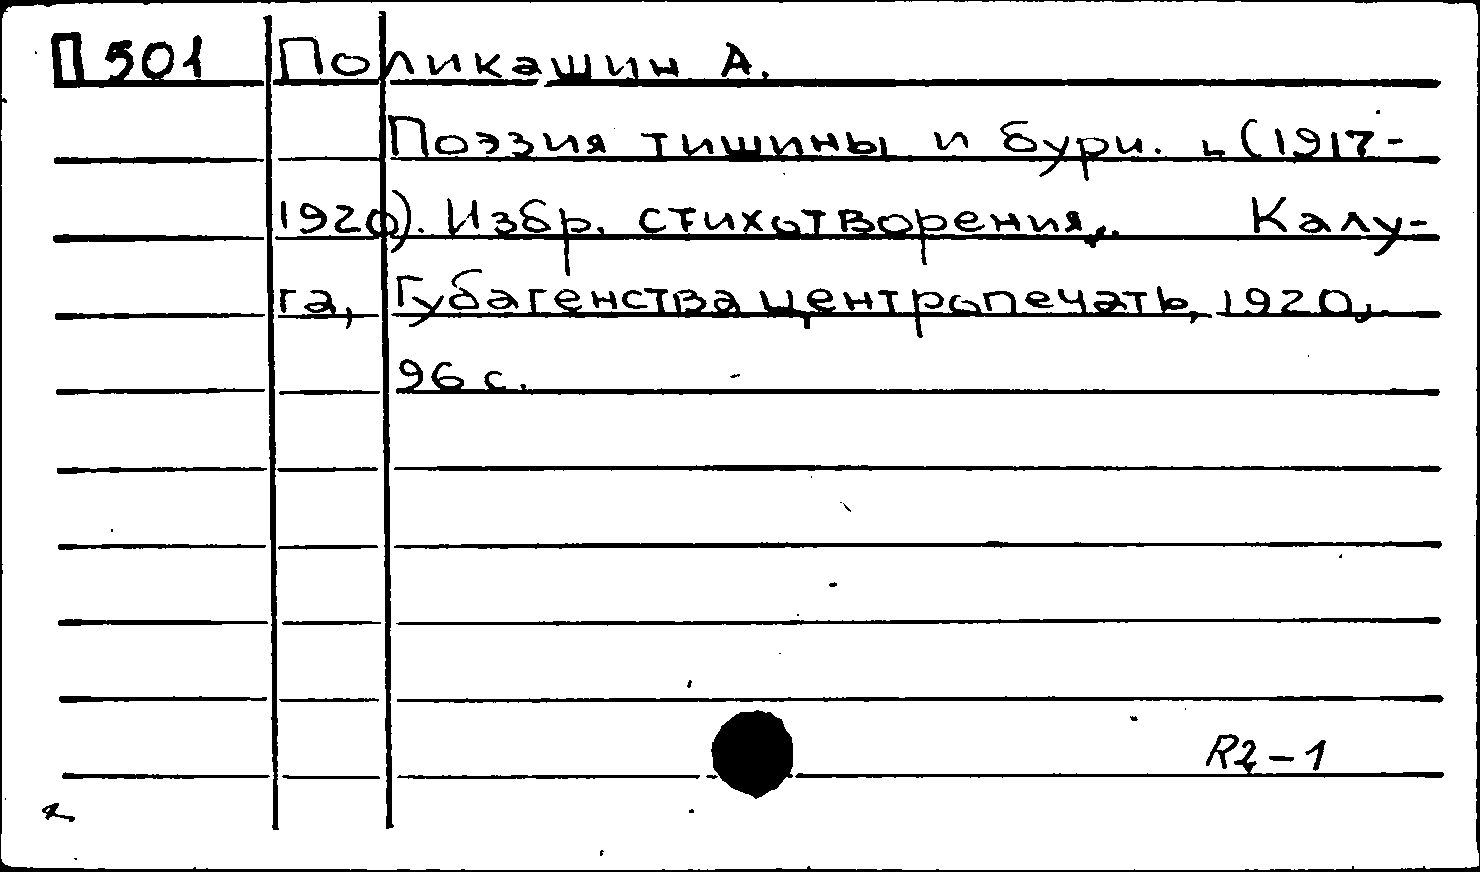 П501 Поликашин А.
Поэзия тишины и бури. (1917-
1920). Избр. стихотворения. Калу-
га, Губагенства центропечать, 1920,
96 с.
R2-1